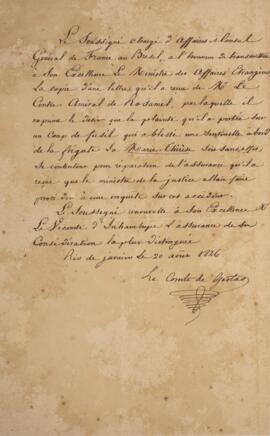 Le Soussigné chargé d'Affaires & Consul
Général de France au Brésil, a l'honneur de transmettre
à Son Excellence Le Ministre des Affaires Etrangères
la copie d'une lettre qu'il a reçue de Mr Le
Contre Amiral de Rosamel, par laquelle il
exprime le désir que la plainte qu'il a portée sur
un Coup de fusil qui a blessé une Sentinelle à bord
de la frégate la Marie-Thérèse soit sans effet
Se contentant pour réparation de l'assurance qu'il a
reçue que le ministre de la justice allait faire
procéder à une enquête sur cet accident.
Le Soussigné renouvelle à Son Excellence Mr
Le Vicomte d'Inhambupe l'assurance de Sa
Considération la plus distinguée
Rio de janeiro le 20 août 1826
Le Comte de Gestas